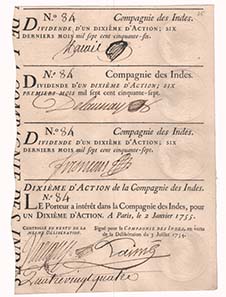 N.° 84 Compagnie des Indes.
DIVIDENDE D'UN DIXIÈME D'ACTION; SIX
DERNIERS MOIS mil sept cent cinquante-six.
N.° 84 Compagnie des Indes.
DIVIDENDE D'UN DIXIÈME D'ACTION; SIX
PREMIERS MOIS mil sept cent cinquante-sept.
Delaunay
N.° 84 Compagnie des Indes.
DIVIDENDE D'UN DIXIÈME D'ACTION; SIX
DERNIERS MOIS mil sept cent cinquante-sept.
DIXIÈME D'ACTION de la Compagnie des Indes.
N.° 84
LE Porteur a intérêt dans la Compagnie des Indes, pour
un DIXIÈME D'ACTION. A Paris, le 2 Janvier 1755.
CONTROLLÉ EN VERTU DE LA
MESME DÉLIBÉRATION.
Signé pour la COMPAGNIE DES INDES, en vertu
de la Délibération du 3 Juillet 1754.
Quatre vingt quatre